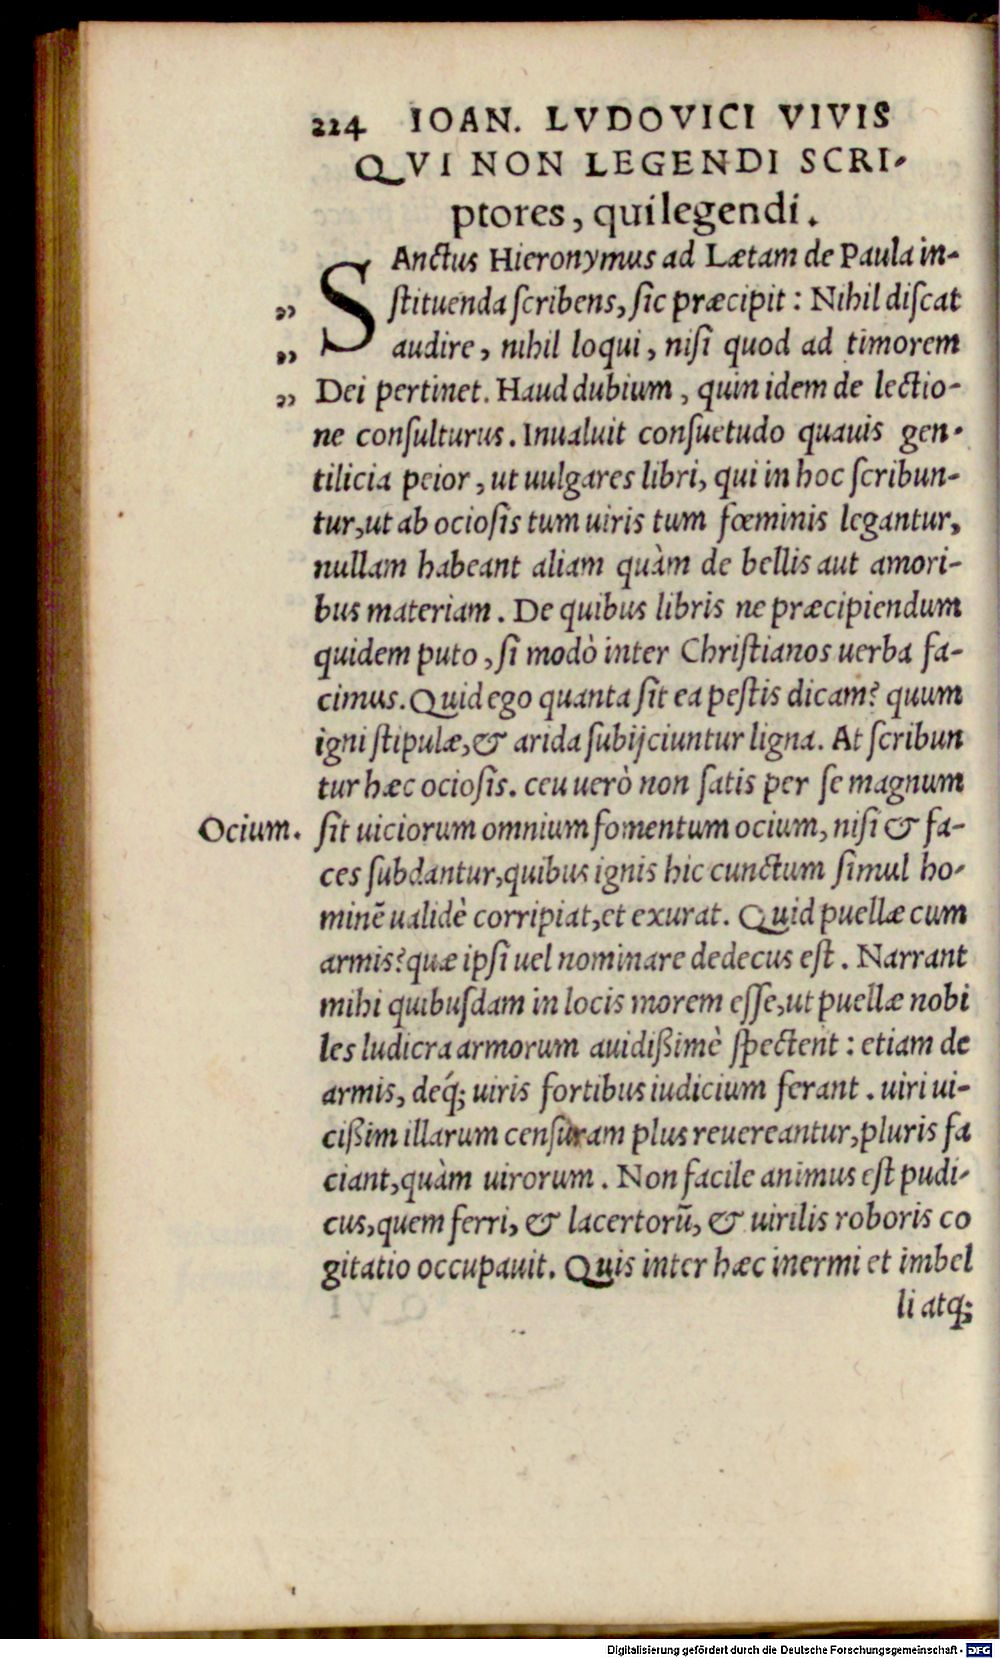 224 IOAN. LVDOVICI VIVIS
QVI NON LEGENDI SCRI-
ptores, qui legendi.
SAnctus Hieronymus ad Lætam de Paula in-
„ ſtituenda ſcribens, ſic præcipit: Nihil diſcat
„ audire, nihil loqui, niſi quod ad timorem
„ Dei pertinet. Haud dubium, quin idem de lectio-
ne conſulturus. Inualuit conſuetudo quauis gen-
tilicia peior, ut uulgares libri, qui in hoc ſcribun-
tur, ut ab ocioſis tum uiris tum fœminis legantur,
nullam habeant aliam quàm de bellis aut amori-
bus materiam. De quibus libris ne præcipiendum
quidem puto, ſi modò inter Chriſtianos uerba fa-
cimus. Quid ego quanta ſit ea peſtis dicam? quum
igni ſtipulæ, & arida ſubijciuntur ligna. At ſcribun
tur hæc ocioſis. ceu uerò non ſatis per ſe magnum
Ocium. ſit uiciorum omnium fomentum ocium, niſi & fa-
ces ſubdantur, quibus ignis hic cunctum ſimul ho-
minē ualidè corripiat, et exurat. Quid puellæ cum
armis? quæ ipſi uel nominare dedecus eſt. Narrant
mihi quibuſdam in locis morem eſſe, ut puellæ nobi
les ludicra armorum auidißimè ſpectent: etiam de
armis, deq́; uiris fortibus iudicium ferant. uiri ui-
cißim illarum cenſuram plus reuereantur, pluris fa
ciant, quàm uirorum. Non facile animus eſt pudi-
cus, quem ferri, & lacertorū, & uirilis roboris co
gitatio occupauit. Quis inter hæc inermi et imbel
li atq;
Digitalisierung gefördert durch die Deutsche Forschungsgemeinschaft - DFG